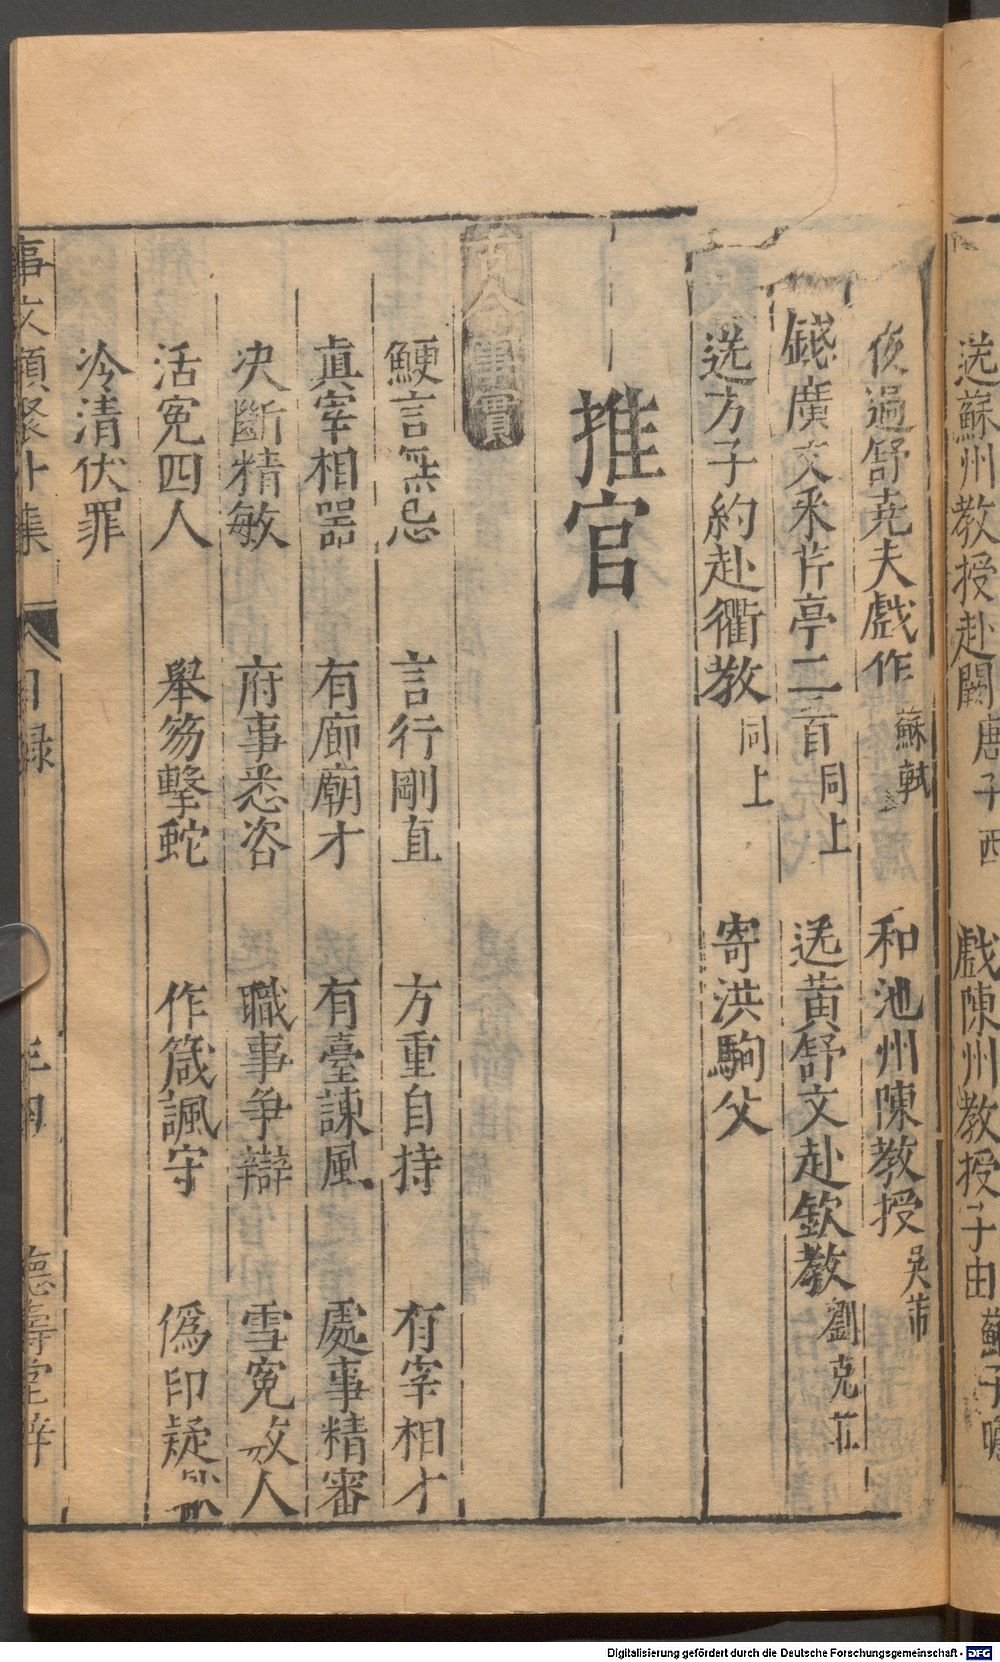 送蘇州教授赴闕 唐子西 戲陳州教授子由 蘇子瞻
夜過舒堯夫戲作 蘇軾 和池州陳教授 吳芾
錢廣文釆芹亭二首 同上 送黃舒文赴欽教 劉克莊
送方子約赴衢教 同上 寄洪駒父
推官
古今事實
鯁言無忌 言行剛直 方重自持 有宰相才
真宰相器 有廊廟才 有臺諫風 處事精審
决斷精敏 府事悉咨 職事爭辯 雪冤效人
活冤四人 舉笏擊蛇 作箴諷守 僞印疑
冷清伏罪
事文類聚外集 目録 德壽堂梓
Digitalisierung gefördert durch die Deutsche Forschungsgemeinschaft - DFG